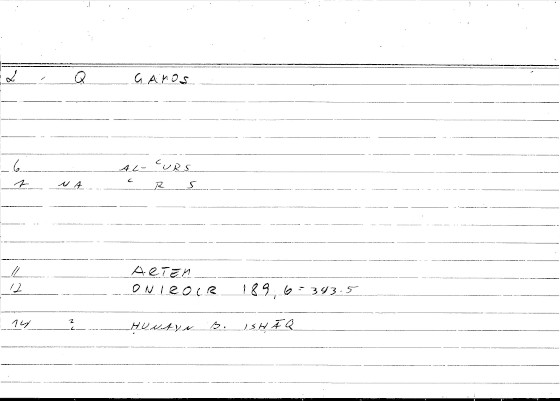 2 - Q GAMOS
6 AL-ʿURS
7 NA ʿ R S
11 ARTEM
12 ONIROCR 189,6=343.5
14 2 ḤUNAYN B. ISḤĀQ